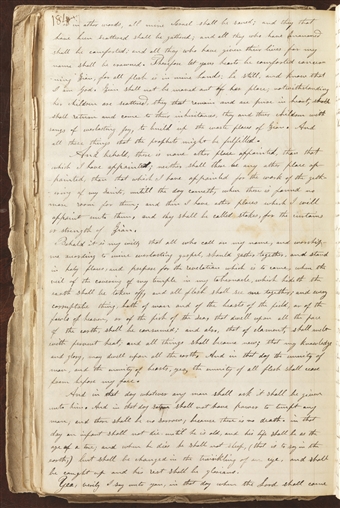 184
in other words, all mine Israel shall be saved; and they that
have been scattered shall be gathered; and all they who have mourned
shall be comforted; and all they who have given their lives for my
name shall be crowned. Therefore let your hearts be comforted concern-
ing Zion, for all flesh is in mine hands: be still, and know that
I am God. Zion shall not be moved out of her place, notwithstanding
her children are scattered; they that remain and are pure in heart, shall
shall return and come to their inheritances, they and their children with
songs of everlasting joy, to build up the waste places of Zion. And
all these things that the prophets might be fulfilled.
And behold, there is none other place appointed, than that
which I have appointed, neither shall there be any other place ap-
pointed, than that which I have appointed for the work of the gath-
ering of my saints, untill the day cometh, when there is found no
more room for them; and then I have other places which I will
appoint unto them, and they shall be called stakes, for the curtains
or strength of Zion.
Behold it is my will, that all who call on my name, and worship
me according to mine everlasting gospel, should gather together, and stand
in holy places; and prepare for the revelation which is to come, when the
veil of the covering of my temple, in my tabernacle, which hideth the
earth shall be taken off, and all flesh shall see me together; and every
corruptible thing, both of man and of the beasts of the field, or of the
fowls of heaven, or of the fish of the sea, that dwell upon all the face
of the earth, shall be consumed; and also, that of element, shall melt
with fervent heat; and all things shall become new; that my knowledge
and glory, may dwell upon all the earth. And in that day the enmity of
man, and the enmity of beasts, yea, the enmity of all flesh shall cease
from before my face.
And in that day whatever any man shall ask it shall be given
unto him; And in that day satan shall not have power to tempt any
man; and there shall be no sorrow, because there is no death: in that
day an infant shall not die untill he is old, and his life shall be as the
age of a tree; and when he dies he shall not sleep, (that is to say in the
earth,) but shall be changed in the twinkling of an eye, and shall
be caught up and his rest shall be glorious.
Yea, verily I say unto you, in that day when the Lord shall come